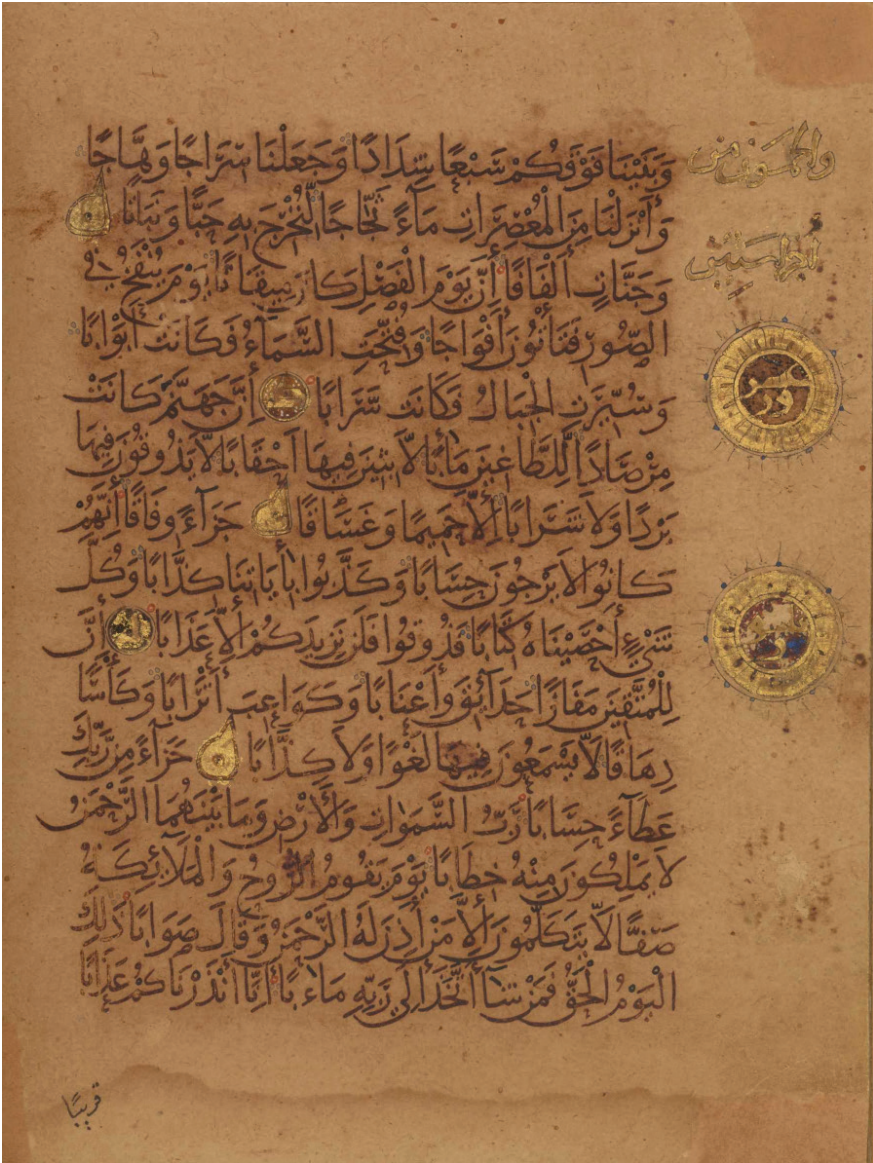 وَبَنَيْنَا فَوْقَكُمْ سَبْعًا شِدَادًا وَجَعَلْنَا سِرَاجًا وَهَّاجًا
وَأَنْزَلْنَا مِنَ الْمُعْصِرَاتِ مَآءً ثَجَّاجًا لِّنُخْرِجَ بِهِ حَبًّا وَنَبَاتًا
وَجَنَّاتٍ أَلْفَافًا إِنَّ يَوْمَ الْفَصْلِ كَانَ مِيقَاتًا يَوْمَ يُنْفَخُ فِي
الصُّورِ فَتَأْتُونَ أَفْوَاجًا وَفُتِّحَتِ السَّمَآءُ فَكَانَتْ أَبْوَابًا
وَسُيِّرَتِ الْجِبَالُ فَكَانَتْ سَرَابًا إِنَّ جَهَنَّمَ كَانَتْ
مِرْصَادًا لِّلطَّاغِينَ مَاٰبًا لَّابِثِينَ فِيهَا أَحْقَابًا لَّا يَذُوقُونَ فِيهَا
بَرْدًا وَلَا شَرَابًا إِلَّا حَمِيمًا وَغَسَّاقًا جَزَآءً وِفَاقًا إِنَّهُمْ
كَانُوا لَا يَرْجُونَ حِسَابًا وَكَذَّبُوا بِاٰيَاتِنَا كِذَّابًا وَكُلَّ
شَيْءٍ أَحْصَيْنَاهُ كِتَابًا فَذُوقُوا فَلَن نَّزِيدَكُمْ إِلَّا عَذَابًا إِنَّ
لِلْمُتَّقِينَ مَفَازًا حَدَآئِقَ وَأَعْنَابًا وَكَوَاعِبَ أَتْرَابًا وَكَأْسًا
دِهَاقًا لَّا يَسْمَعُونَ فِيهَا لَغْوًا وَلَا كِذَّابًا جَزَآءً مِّن رَّبِّكَ
عَطَآءً حِسَابًا رَّبُّ السَّمٰوَاتِ وَالْأَرْضِ وَمَا بَيْنَهُمَا الرَّحْمٰنُ
لَا يَمْلِكُونَ مِنْهُ خِطَابًا يَوْمَ يَقُومُ الرُّوحُ وَالْمَلَآئِكَةُ
صَفًّا لَّا يَتَكَلَّمُونَ إِلَّا مَنْ أَذِنَ لَهُ الرَّحْمٰنُ وَقَالَ صَوَابًا ذَٰلِكَ
الْيَوْمُ الْحَقُّ فَمَنْ شَآءَ اتَّخَذَ إِلَىٰ رَبِّهِ مَاٰبًا إِنَّا أَنْذَرْنَاكُمْ عَذَابًا
قَرِيبًا